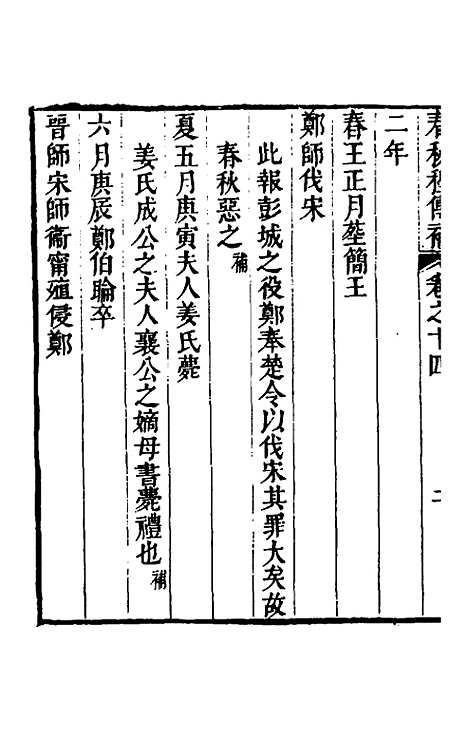 春秋程傳補 卷之十四 二
二年
春王正月葬簡王
鄭師伐宋
此報彭城之役鄭奉楚令以伐宋其罪大矣故
春秋惡之補
夏五月庚寅夫人姜氏薨
姜氏成公之夫人襄公之嫡母書薨禮也補
六月庚辰鄭伯睔卒
晉師宋師衞甯殖侵鄭